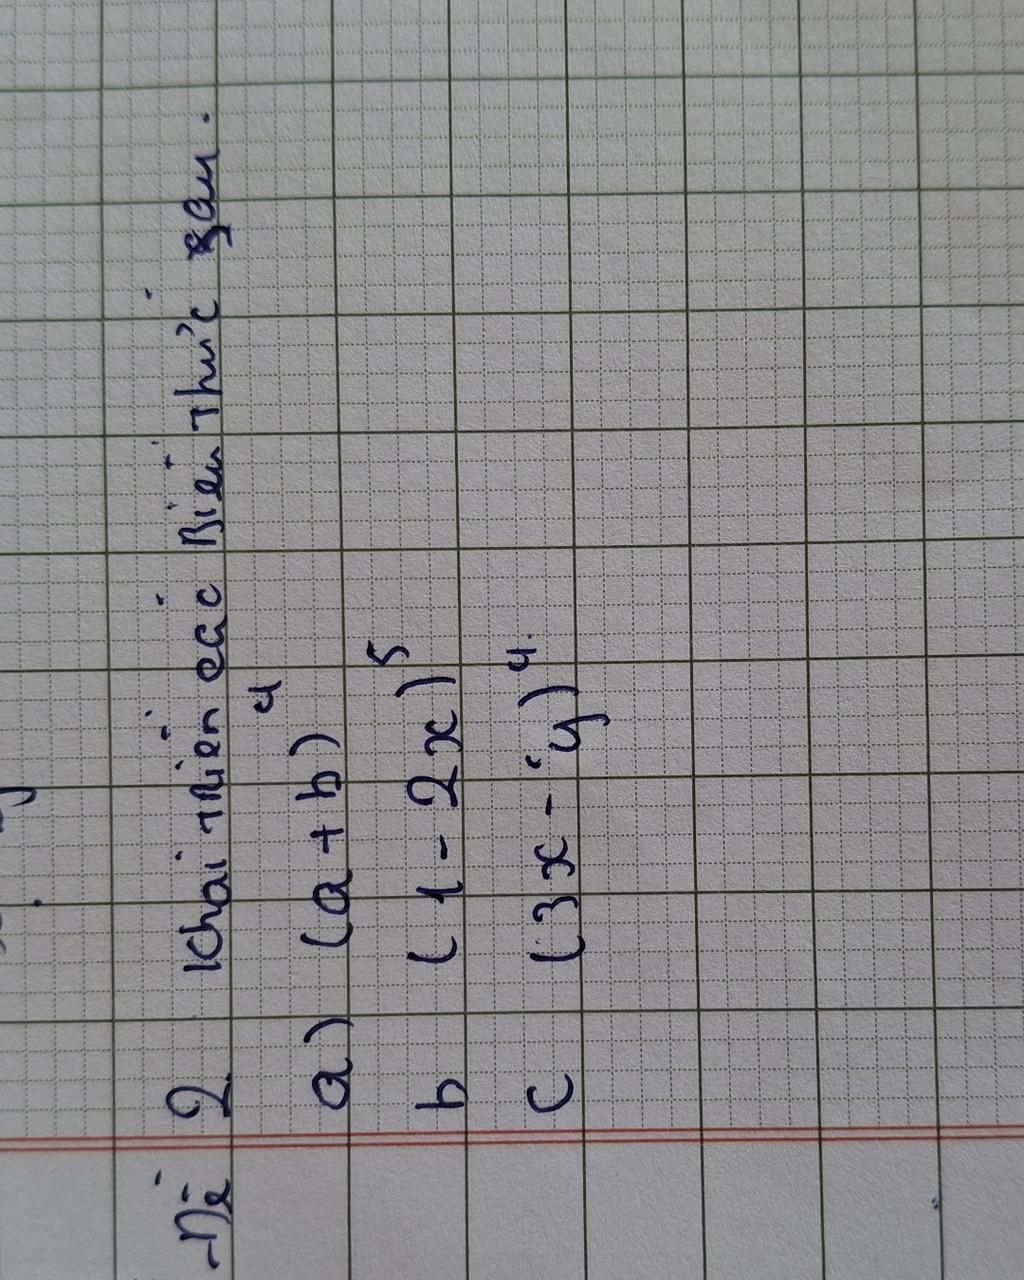 Đề 2 Khai triển các Biến thức sau.
a) (a + b)⁴
b (1 - 2x)⁵
c (3x - y)⁴.